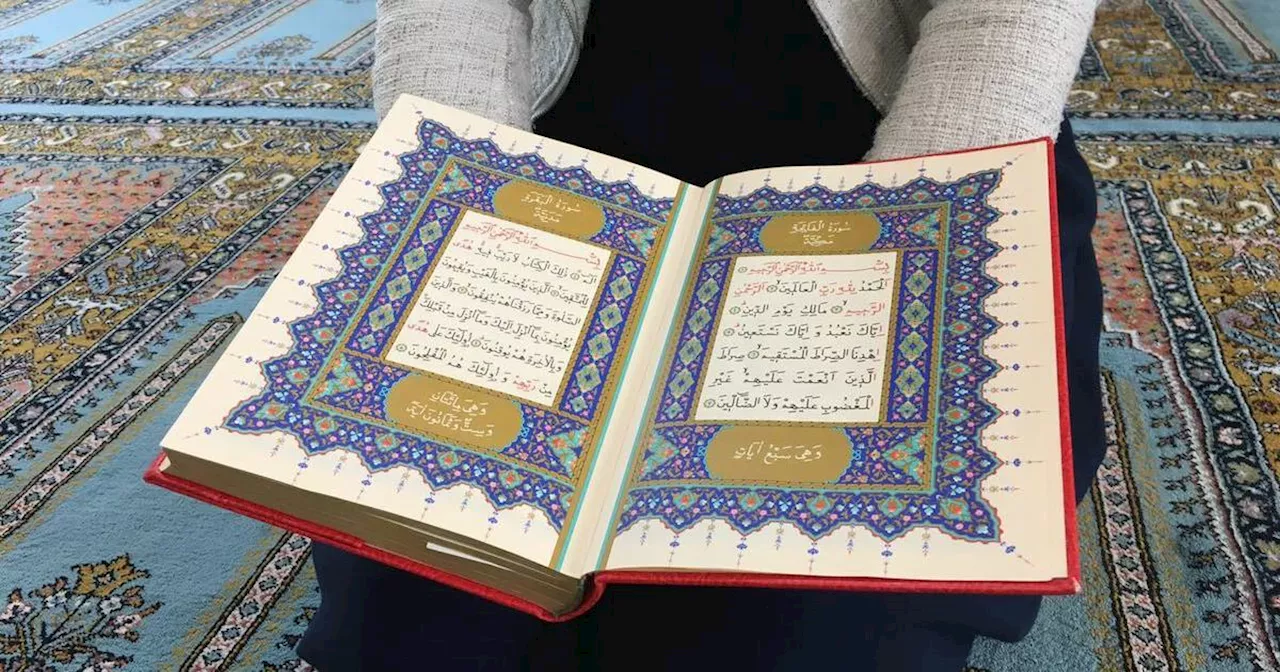 سُورَةُ الْفَاتِحَةِ
مَكِّيَّةٌ
بِسْمِ اللّٰهِ الرَّحْمٰنِ الرَّحِيمِ
اَلْحَمْدُ لِلّٰهِ رَبِّ الْعَالَمِينَ الرَّحْمٰنِ
الرَّحِيمِ مَالِكِ يَوْمِ الدِّينِ
اِيَّاكَ نَعْبُدُ وَ اِيَّاكَ نَسْتَعِينُ
اِهْدِنَا الصِّرَاطَ الْمُسْتَقِيمَ صِرَاطَ
الَّذِينَ اَنْعَمْتَ عَلَيْهِمْ غَيْرِ
الْمَغْضُوبِ عَلَيْهِمْ وَلَا الضَّالِّينَ
وَهِيَ سَبْعُ اٰيَاتٍ
سُورَةُ الْبَقَرَةِ
مَدَنِيَّةٌ
بِسْمِ اللّٰهِ الرَّحْمٰنِ الرَّحِيمِ
الٓمٓ ذٰلِكَ الْكِتَابُ لَا رَيْبَ فِيهِ هُدًى
لِلْمُتَّقِينَ اَلَّذِينَ يُؤْمِنُونَ بِالْغَيْبِ وَيُقِيمُونَ
الصَّلٰوةَ وَمِمَّا رَزَقْنَاهُمْ يُنْفِقُونَ وَالَّذِينَ
يُؤْمِنُونَ بِمَا اُنْزِلَ اِلَيْكَ وَمَا اُنْزِلَ مِنْ قَبْلِكَ
وَبِالْاٰخِرَةِ هُمْ يُوقِنُونَ اُولٰئِكَ عَلٰى هُدًى
مِنْ رَبِّهِمْ وَ اُولٰئِكَ هُمُ الْمُفْلِحُونَ
وَهِيَ مِائَتَانِ
وَسِتٌّ وَثَمَانُونَ اٰيَةً